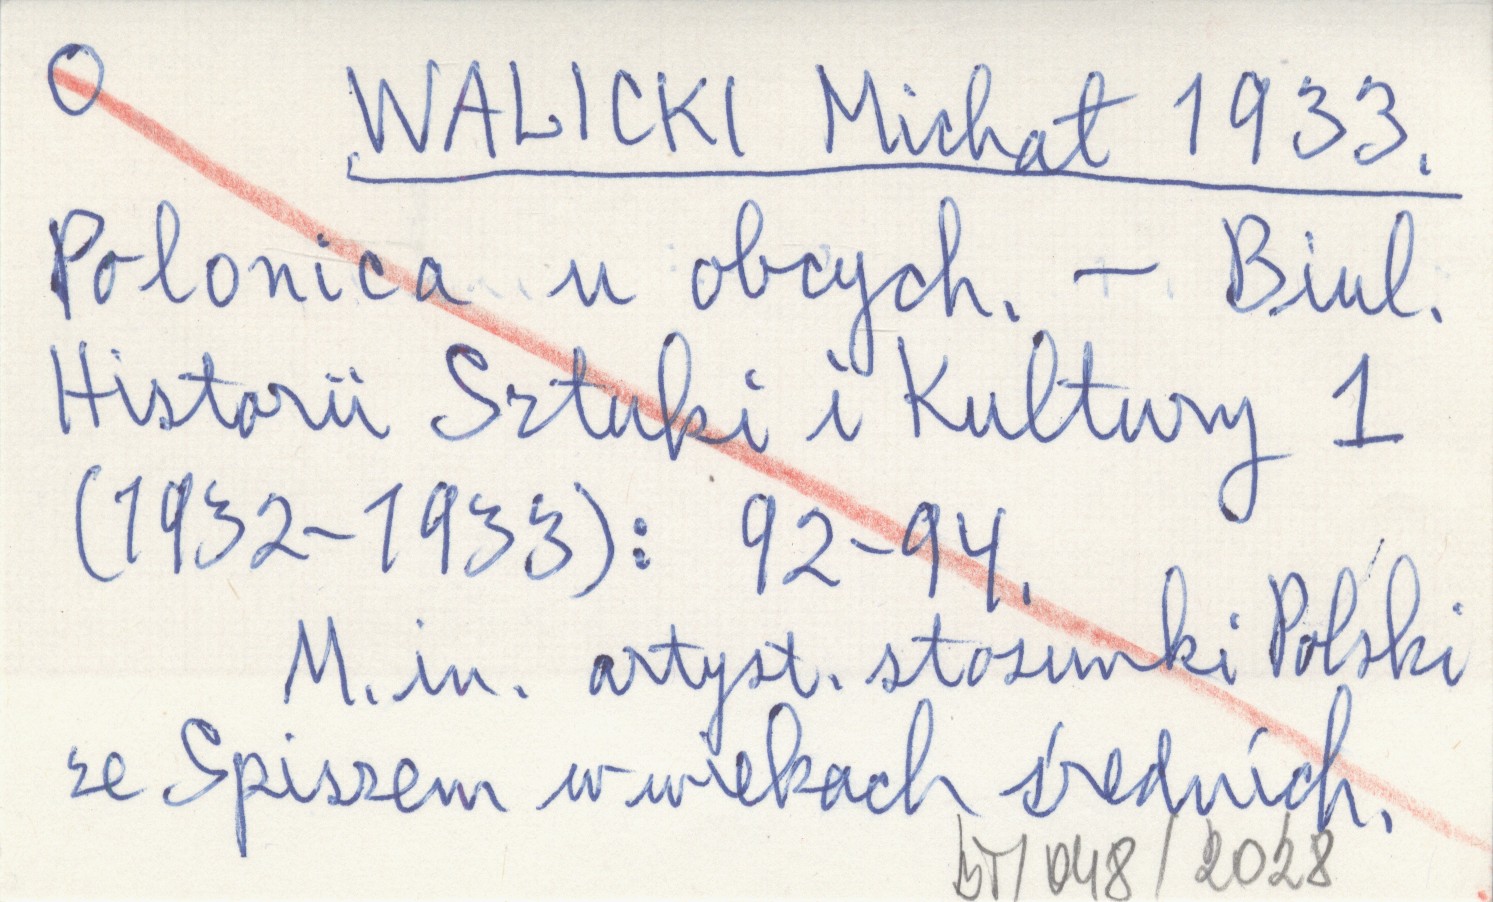 O WALICKI Michał 1933.
Polonica u obcych. – Biul.
Historii Sztuki i Kultury 1
(1932–1933): 92–94.
M.in. artyst. stosunki Polski
ze Spiszem w wiekach średnich.
BT/048/2028